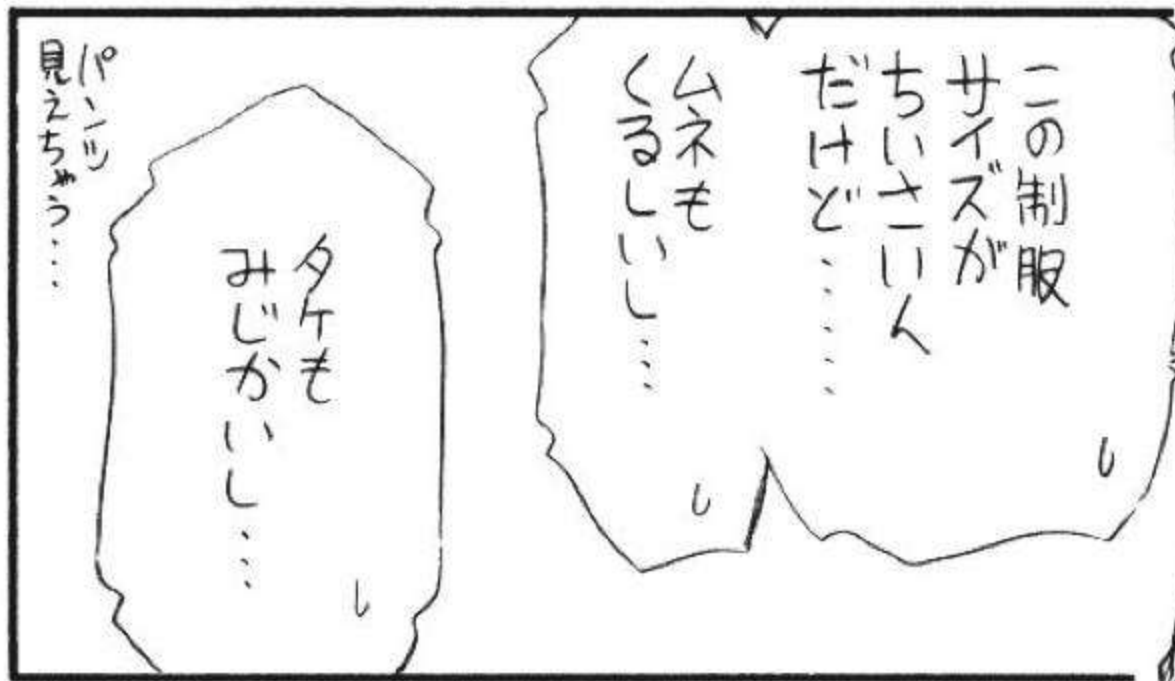 この制服
サイズが
ちいさいん
だけど・・・・・
ムネも
くるしいし・・・
タケも
みじかいし・・・
パンツ
見えちゃう・・・・